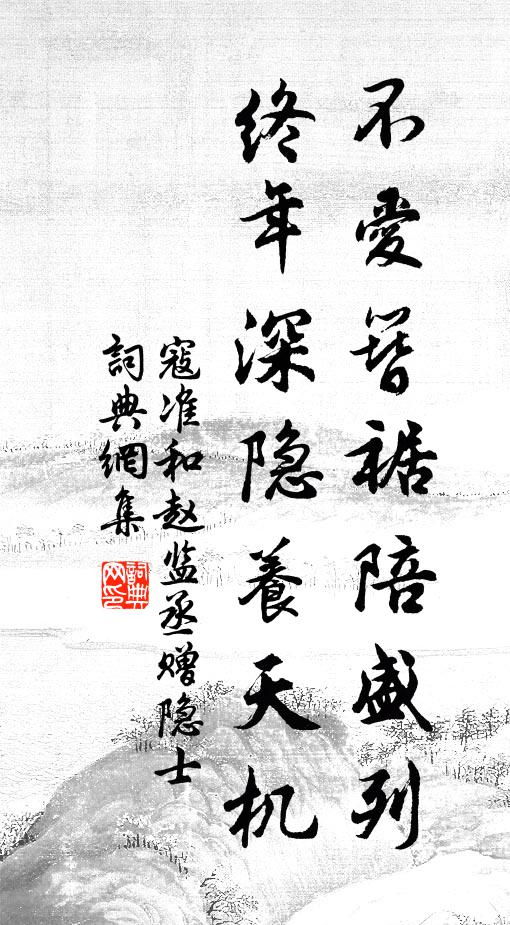 不愛簪裾陪盛列
终年深隐養天机
寇准和赵监丞赠隐士
詞典網集
詞典网印